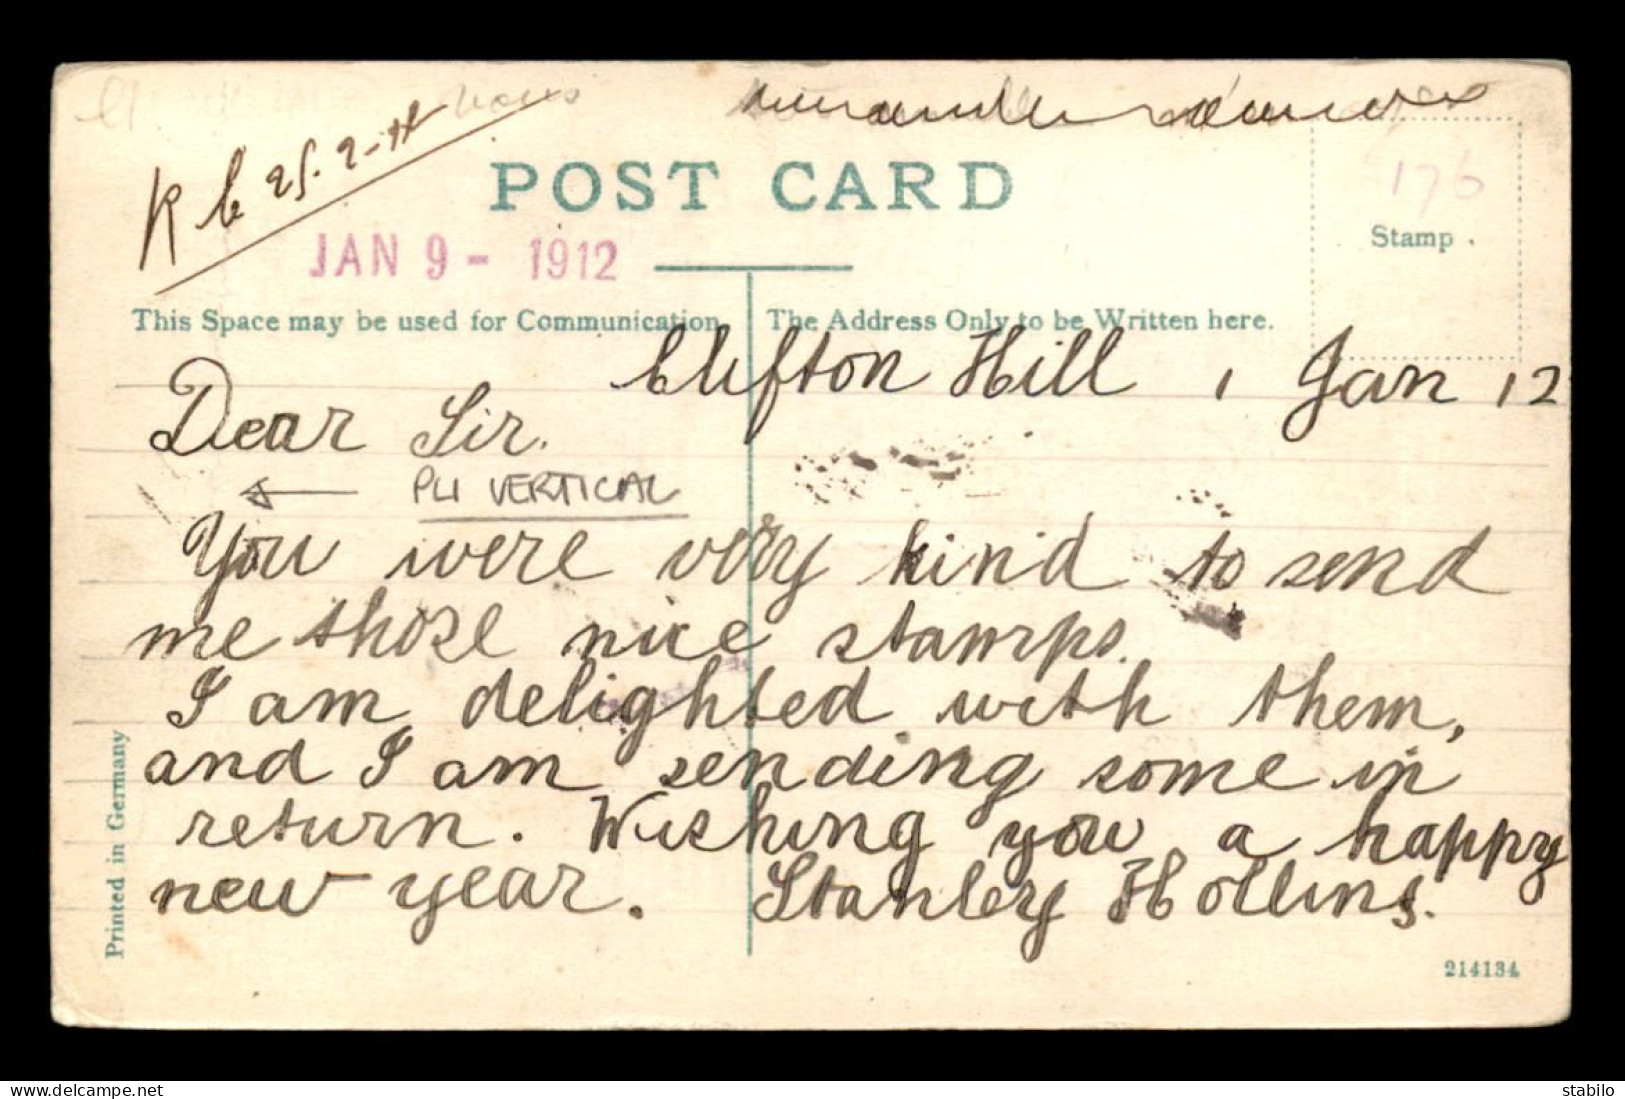 POST CARD
176
Stamp
JAN 9 - 1912
This Space may be used for Communication
The Address Only to be Written here.
Clifton Hill 1 Jan 12
Dear Sir.
PLI VERTICAL
You were very kind to send
me those nice stamps.
I am delighted with them,
and I am sending some in
return. Wishing you a happy
new year. Stanley Hollins.
Printed in Germany
214134
delcampe.net
stabilo